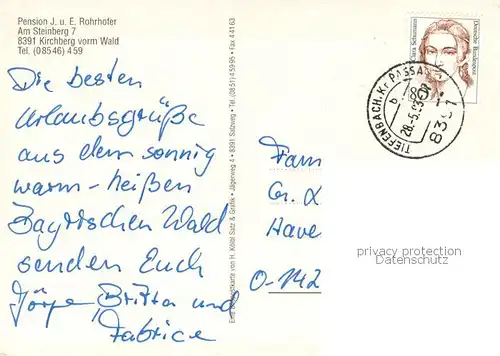 Pension J. u. E. Rohrhofer
Am Steinberg 7
8391 Kirchberg vorm Wald
Tel. (08546) 459
Die besten
Urlaubsgrüße
aus dem sonnig
warm-heißen
Bayrischen Wald
senden Euch
Britta und
Fabrice
Eine Ansichtskarte von H. Köbl Satz & Grafik • Jägerweg 4 • 8391 Salzweg • Tel. (0851) 45995 • Fax 44163
Clara Schumann
Deutsche Bundespost
TIEFENBACH, Kr PASSAU
b
28.-5.93
8391
Fam
Gr. L
Have
O-142
privacy protection
Datenschutz